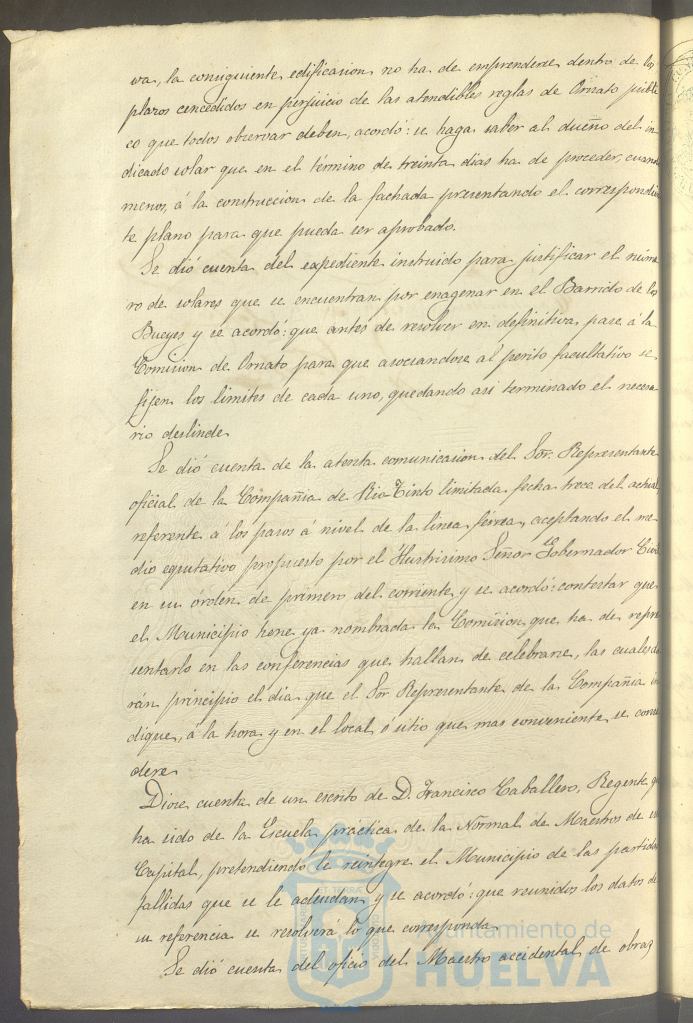 va, la consiguiente edificacion no ha de emprenderse dentro de los
plazos concedidos en perjuicio de las atendibles reglas de Ornato publi
co que todos observar deben, acordó: se haga saber al dueño del in
dicado solar que en el término de treinta dias ha de proceder, cuando
menos, á la construccion de la fachada presentando el correspondien
te plano para que pueda ser aprobado.
Se dió cuenta del expediente instruido para justificar el núme
ro de solares que se encuentran por enagenar en el Barrido de los
Bueyes y se acordó: que antes de resolver en definitiva, pase á la
Comision de Ornato para que asociandose al perito facultativo se
fijen los limites de cada uno, quedando asi terminado el necesa
rio deslinde.
Se dió cuenta de la atenta comunicacion del Sor. Representante
oficial de la Compañia de Rio Tinto limitada, fecha trece del actual,
referente á los pasos á nivel de la linea férrea, aceptando el me
dio equitativo propuesto por el Ilustrisimo Señor Gobernador Civil
en su órden de primero del corriente, y se acordó: contestar que
el Municipio tiene ya nombrada la Comision que ha de repre
sentarlo en las conferencias que hallan de celebrarse, las cuales da
rán principio el dia que el Sor Representante de la Compañia in
dique, á la hora y en el local ó sitio que mas conveniente se consi
dere.
Diose cuenta de un escrito de D. Francisco Caballero, Regente q
ha sido de la Escuela práctica de la Normal de Maestros de esta
Capital, pretendiendo le reintegre el Municipio de las partidas
fallidas que se le adeudan y se acordó: que reunidos los datos de
su referencia se resolverá lo que corresponda.
Se dió cuenta del oficio del Maestro accidental de obras
Ayuntamiento de
HUELVA